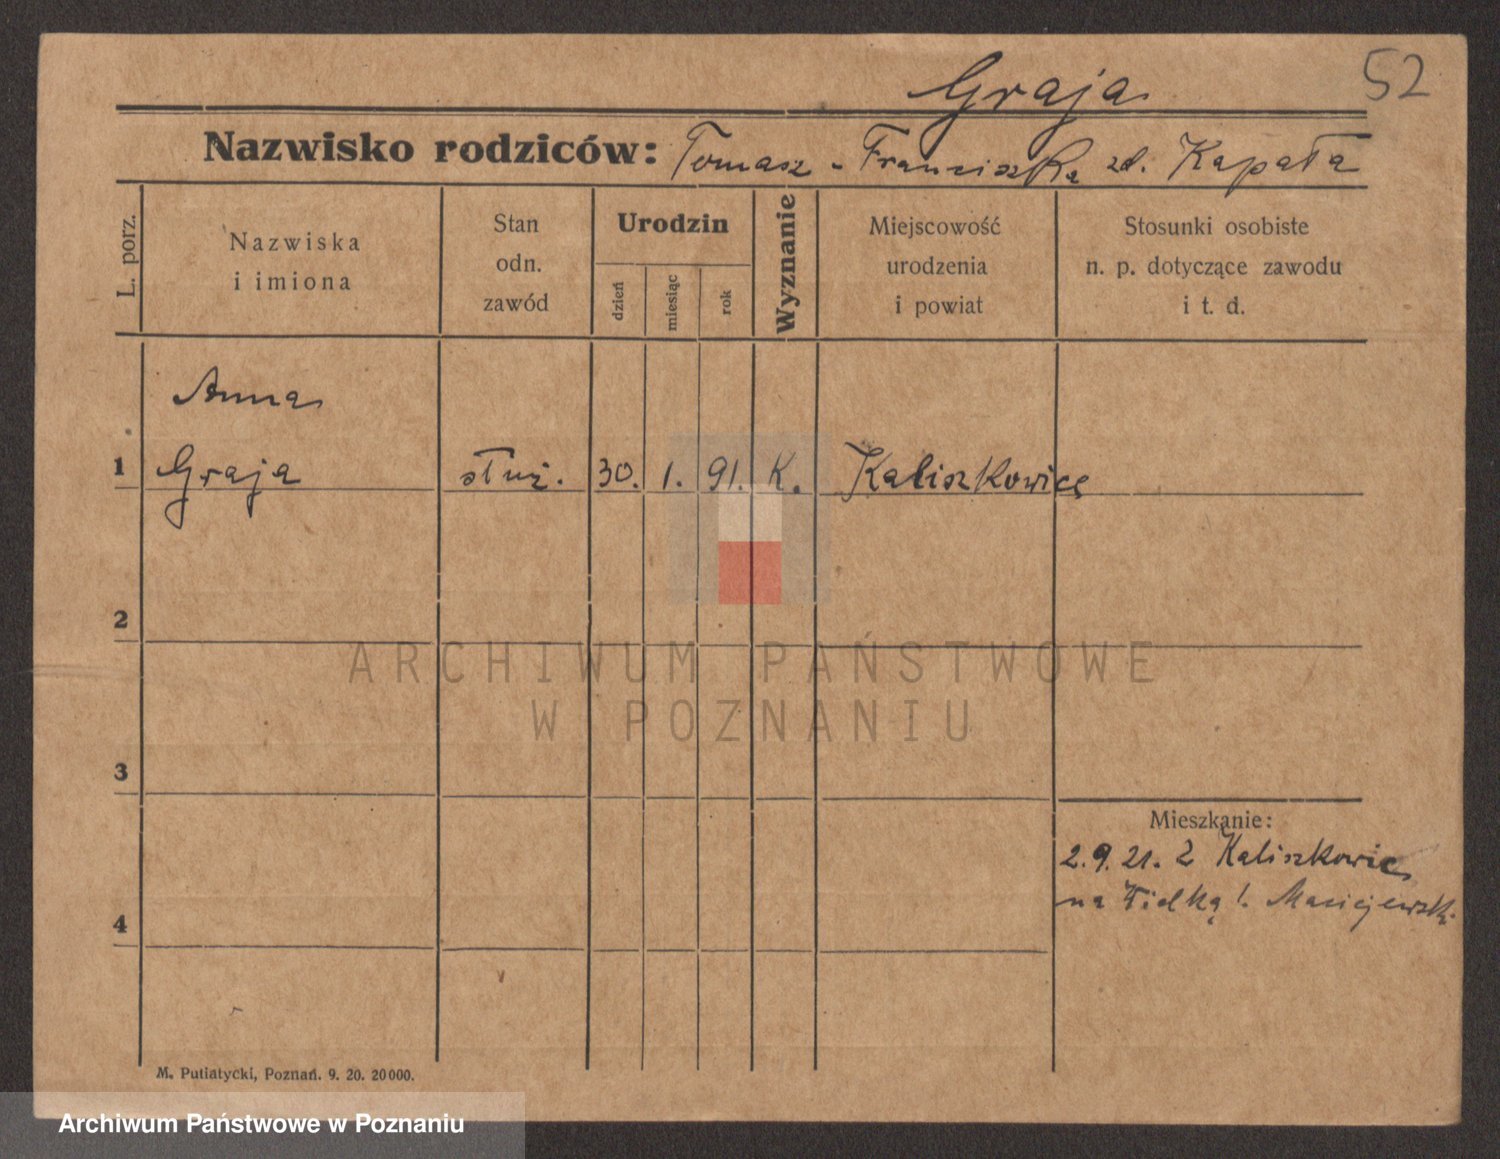 Graja 52
Nazwisko rodziców: Tomasz - Franciszka zd. Kapała
L. porz.
Nazwiska
i imiona
Stan
odn.
zawód
Urodzin
dzień
miesiąc
rok
Wyznanie
Miejscowość
urodzenia
i powiat
Stosunki osobiste
n. p. dotyczące zawodu
i t. d.
Anna
1 Graja służ. 30. 1. 91. K. Kaliszkowice
2
ARCHIWUM PAŃSTWOWE
W POZNANIU
3
Mieszkanie:
2.9.21. Z Kaliszkowic
na Wielką 1. Maciejewski
4
M. Putiatycki, Poznań. 9. 20. 20000.
Archiwum Państwowe w Poznaniu